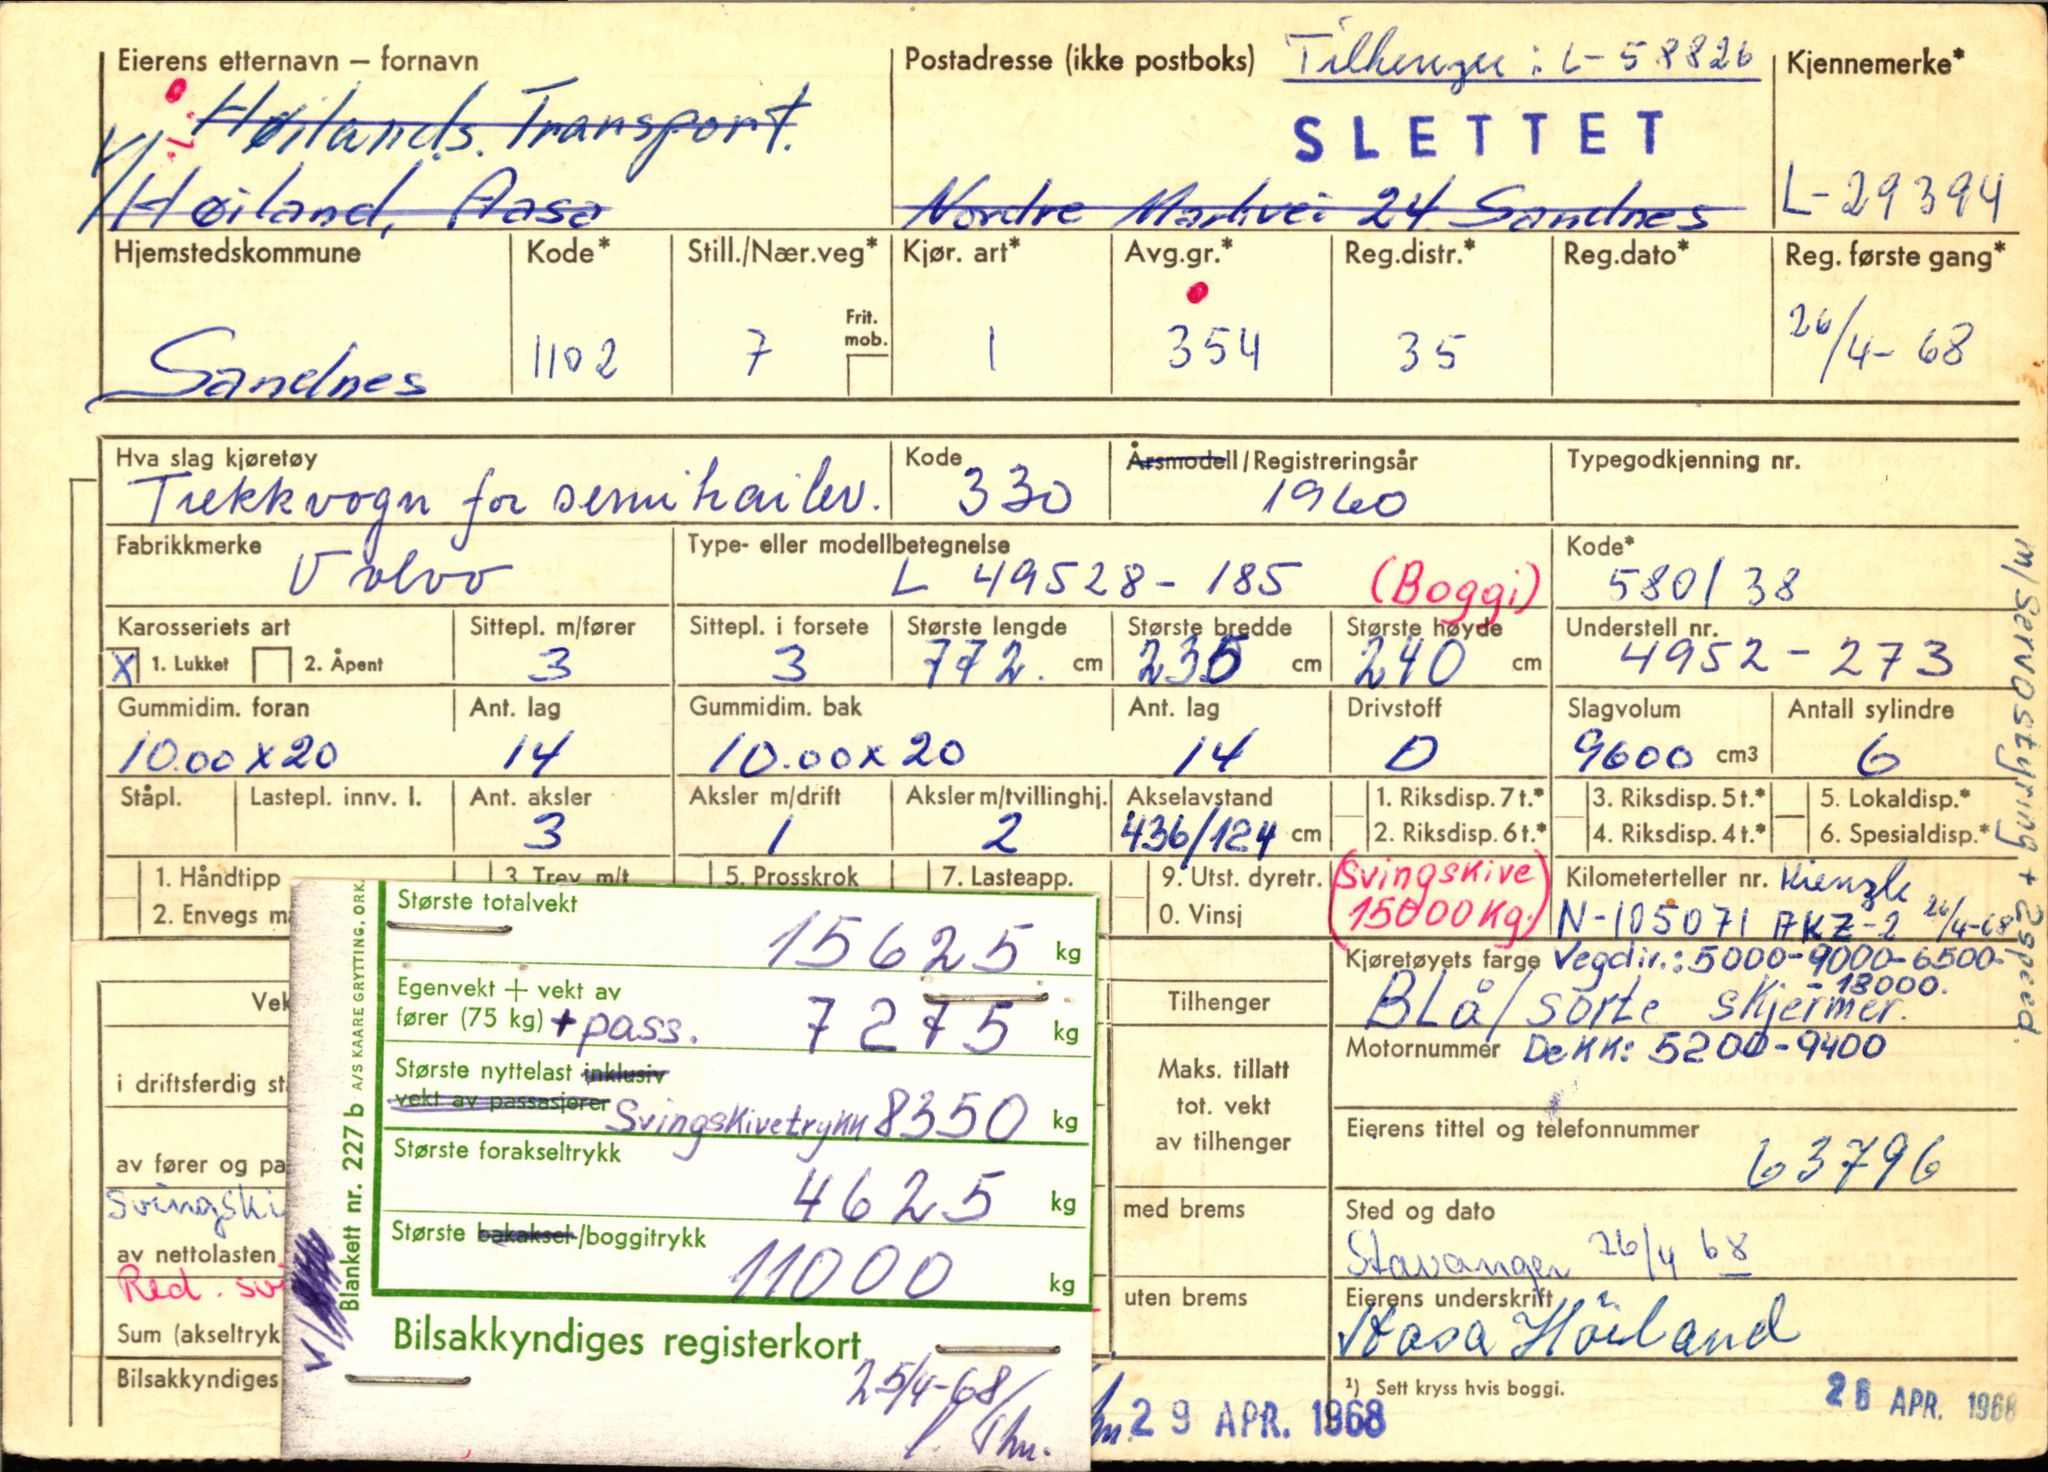 Eierens etternavn – fornavn
Postadresse (ikke postboks)
Tilhenger: L-58826
Kjennemerke*
Høilands. Transport.
SLETTET
v/ Høiland, Aasa
Nordre Markvei 24. Sandnes
L-29394
Hjemstedskommune Kode* Still./Nær.veg* Kjør. art* Avg.gr.* Reg.distr.* Reg.dato* Reg. første gang*
Frit. mob.
Sandnes 1102 7 1 354 35 26/4-68
Hva slag kjøretøy Kode Årsmodell/Registreringsår Typegodkjenning nr.
Trekkvogn for semitrailer. 330 1960
Fabrikkmerke Type- eller modellbetegnelse Kode*
Volvo L 49528-185 (Boggi) 580/38
Karosseriets art Sittepl. m/fører Sittepl. i forsete Største lengde Største bredde Største høyde Understell nr.
X 1. Lukket 2. Åpent 3 3 772. cm 235 cm 240 cm 4952-273
Gummidim. foran Ant. lag Gummidim. bak Ant. lag Drivstoff Slagvolum Antall sylindre
10.00x20 14 10.00x20 14 D 9600 cm3 6
Ståpl. Lastepl. innv. l. Ant. aksler Aksler m/drift Aksler m/tvillinghj. Akselavstand 1. Riksdisp. 7 t.* 3. Riksdisp. 5 t.* 5. Lokaldisp.*
3 1 2 436/124 cm 2. Riksdisp. 6 t.* 4. Riksdisp. 4 t.* 6. Spesialdisp.*
1. Håndtipp 3. Trev. m/t 5. Prosskrok 7. Lasteapp. 9. Utst. dyretr. (Svingskive Kilometerteller nr. Kienzle
2. Envegs m 0. Vinsj 15000 Kg.) N-105071 AKZ-2 26/4-68
m/Servostyring + 2 speed.
Kjøretøyets farge Vegdir.: 5000-9000-6500-
-18000.
Blå/sorte skjermer.
Motornummer Dekk: 5200-9400
Eierens tittel og telefonnummer
63796
Sted og dato
Stavanger 26/4 68
Eierens underskrift
Aasa Höiland
¹) Sett kryss hvis boggi.
26 APR. 1968
Vek
i driftsferdig st
av fører og pa
Svingski
av nettolasten
Red. sv
Sum (akseltryk
Bilsakkyndiges
Tilhenger
Maks. tillatt
tot. vekt
av tilhenger
med brems
uten brems
29 APR. 1968
Blankett nr. 227 b A/S KAARE GRYTTING, ORK.
v/
Største totalvekt
15625 kg
Egenvekt + vekt av
fører (75 kg) + pass. 7275 kg
Største nyttelast inklusiv
vekt av passasjerer Svingskivetrykk 8350 kg
Største forakseltrykk
4625 kg
Største bakaksel-/boggitrykk
11000 kg
Bilsakkyndiges registerkort
25/4-68/